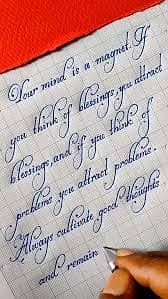 Your mind is a magnet. If
you think of blessings, you attract
blessings, and if you think of
problems, you attract problems.
Always cultivate good thoughts
and remain